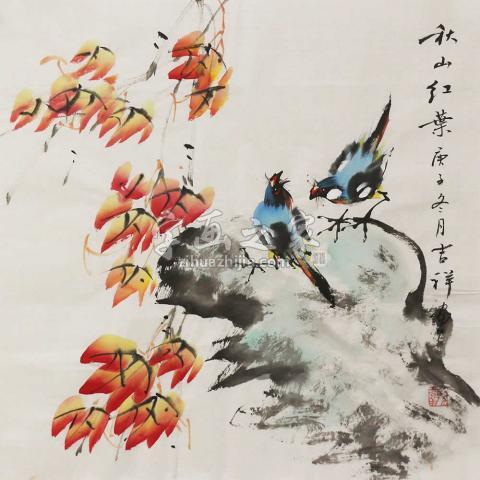 秋山红葉庚子冬月吉祥
字画之家
zihuazhijia.com